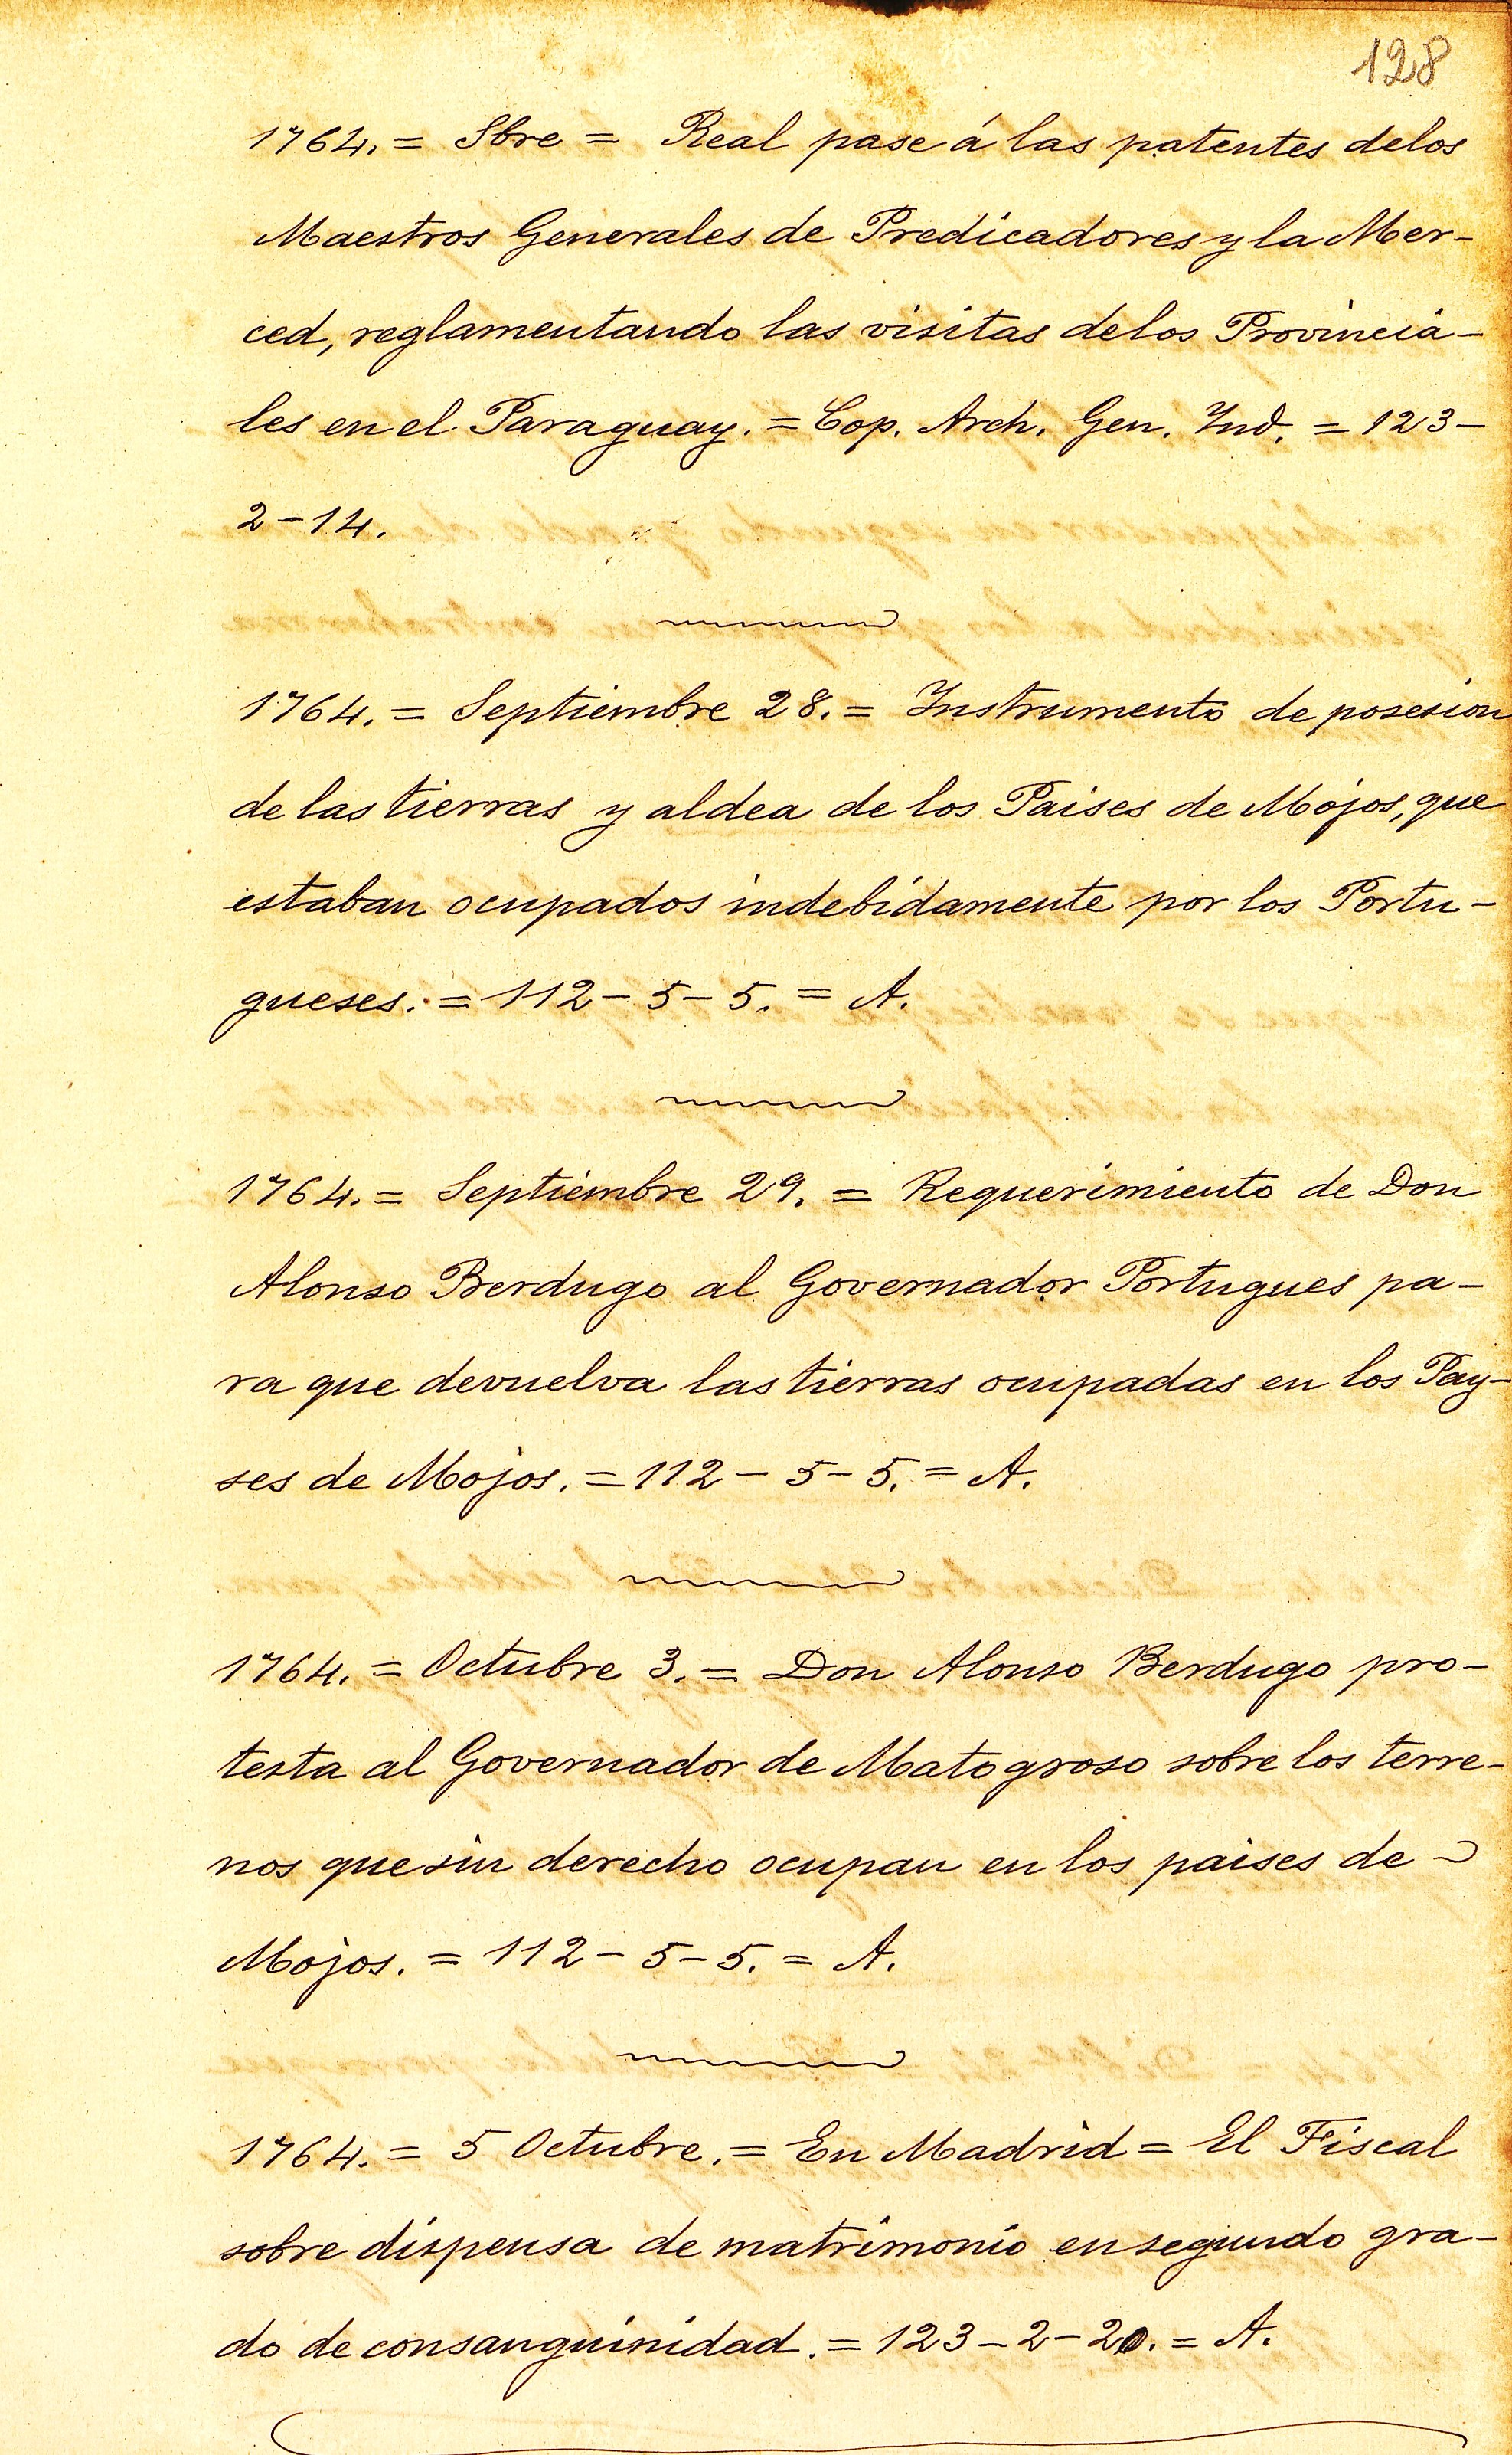 128
1764. = Sbre = Real pase á las patentes delos
Maestros Generales de Predicadores y la Mer-
ced, reglamentando las visitas delos Provincia-
les en el Paraguay. = Cop. Arch. Gen. Ind. = 123-
2-14.
1764. = Septiembre 28. = Instrumento de posesion
de las tierras y aldea de los Paises de Mojos, que
estaban ocupados indebidamente por los Portu-
gueses. = 112-5-5. = A.
1764. = Septiembre 29. = Requerimiento de Don
Alonso Berdugo al Governador Portugues pa-
ra que devuelva las tierras ocupadas en los Pay-
ses de Mojos. = 112-5-5. = A.
1764. = Octubre 3. = Don Alonso Berdugo pro-
testa al Governador de Matogroso sobre los terre-
nos que sin derecho ocupan en los paises de -
Mojos. = 112-5-5. = A.
1764. = 5 Octubre. = En Madrid = El Fiscal
sobre dispensa de matrimonio en segundo gra-
do de consanguinidad. = 123-2-20. = A.